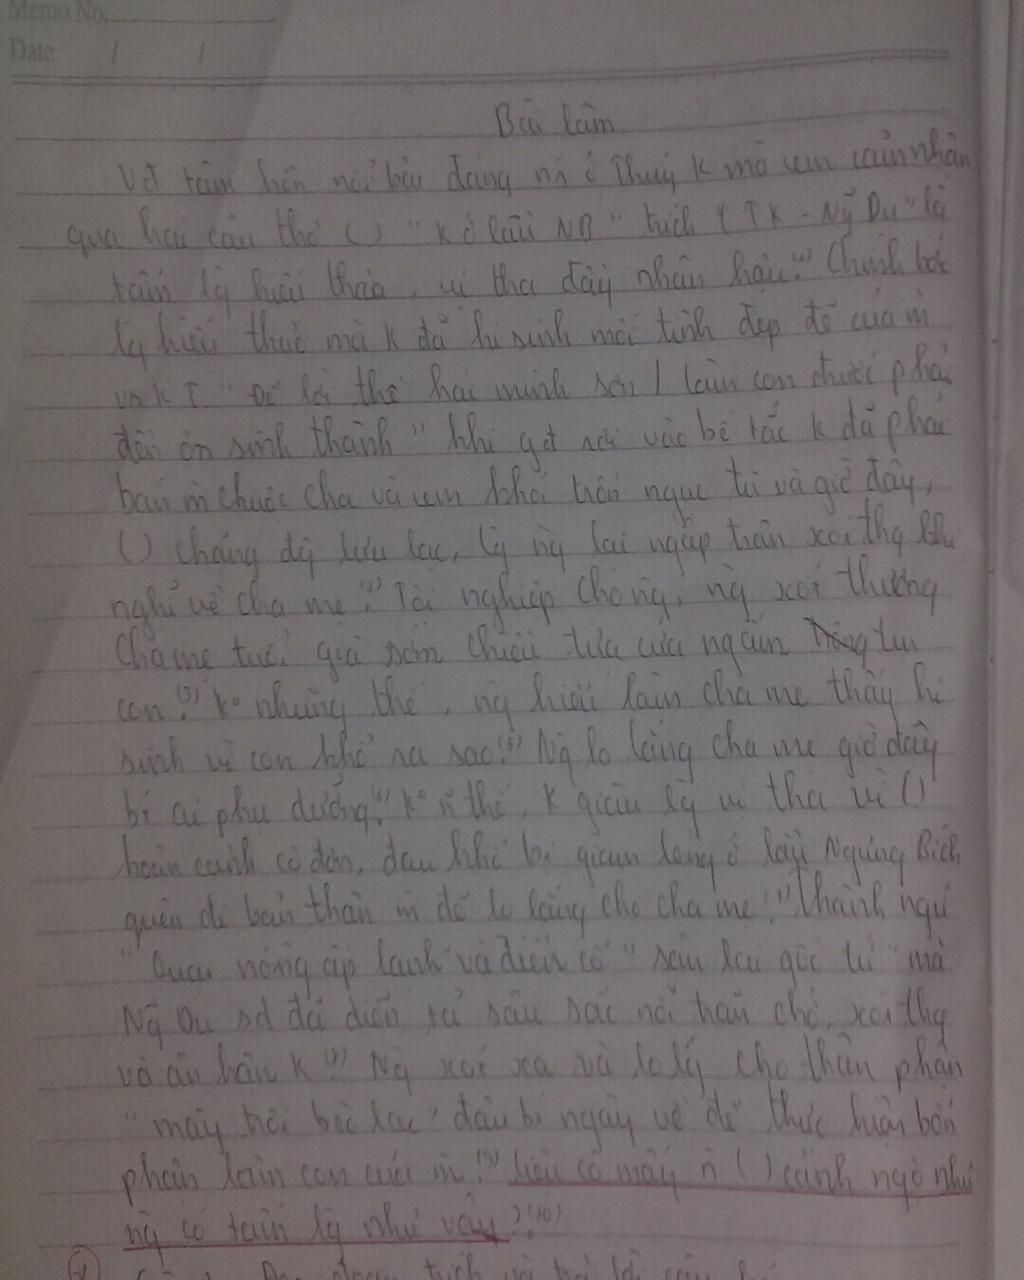 Memo No.
Date / /
Bài làm
Vẻ tâm hồn nổi bật đáng ở Thuý K mà em cảm nhận
qua hai câu thơ () "K ở lầu NB" trích (TK - Ng Du" là
tấm lg hiếu thảo, vị tha đầy nhân hậu.(1) Chính bởi
lg hiếu thuở mà K đã hi sinh mối tình đẹp đẽ của m
và KT "Để lời thề hải minh sơn / làm con trước phải
đền ơn sinh thành" khi gđ rơi vào bế tắc K đã phải
bán m chuộc cha và em khỏi trốn ngục tù và giờ đây,
() tháng dg lưu lạc, lg ng lại ngập tràn xót thg khi
nghĩ về cha mẹ.(2) Tội nghiệp chăng, ng xót thương
cha mẹ tuổi già sớm chiều tựa cửa ngóng tin
con.(3) ko những thế, ng hiểu làm cha mẹ thấy hi
sinh vì con khổ ra sao.(5) Ng lo lắng cha mẹ giờ đây
bí ai phụ dưỡng.(6) ko n thế, K giàu lg vị tha vì ()
hoàn cảnh cô đơn, đau khổ bị giam lỏng ở lầu Ngưng Bích
quên đi bản thân m để lo lắng cho cha mẹ.(7) Thành ngữ
"Quạt nồng ấp lạnh và điển cố "sân lai gốc tử" mà
Ng Du sd đã diễn tả sâu sắc nỗi trăn trở, xót thg
và ân hận K.(8) Ng xót xa và lo lg cho thân phận
"mây trôi bèo lạc" đâu bí ngày về để thực hiện bổn
phận làm con của m.(9) liệu có mấy n () cảnh ngộ như
ng có tấm lg như vậy?(10)